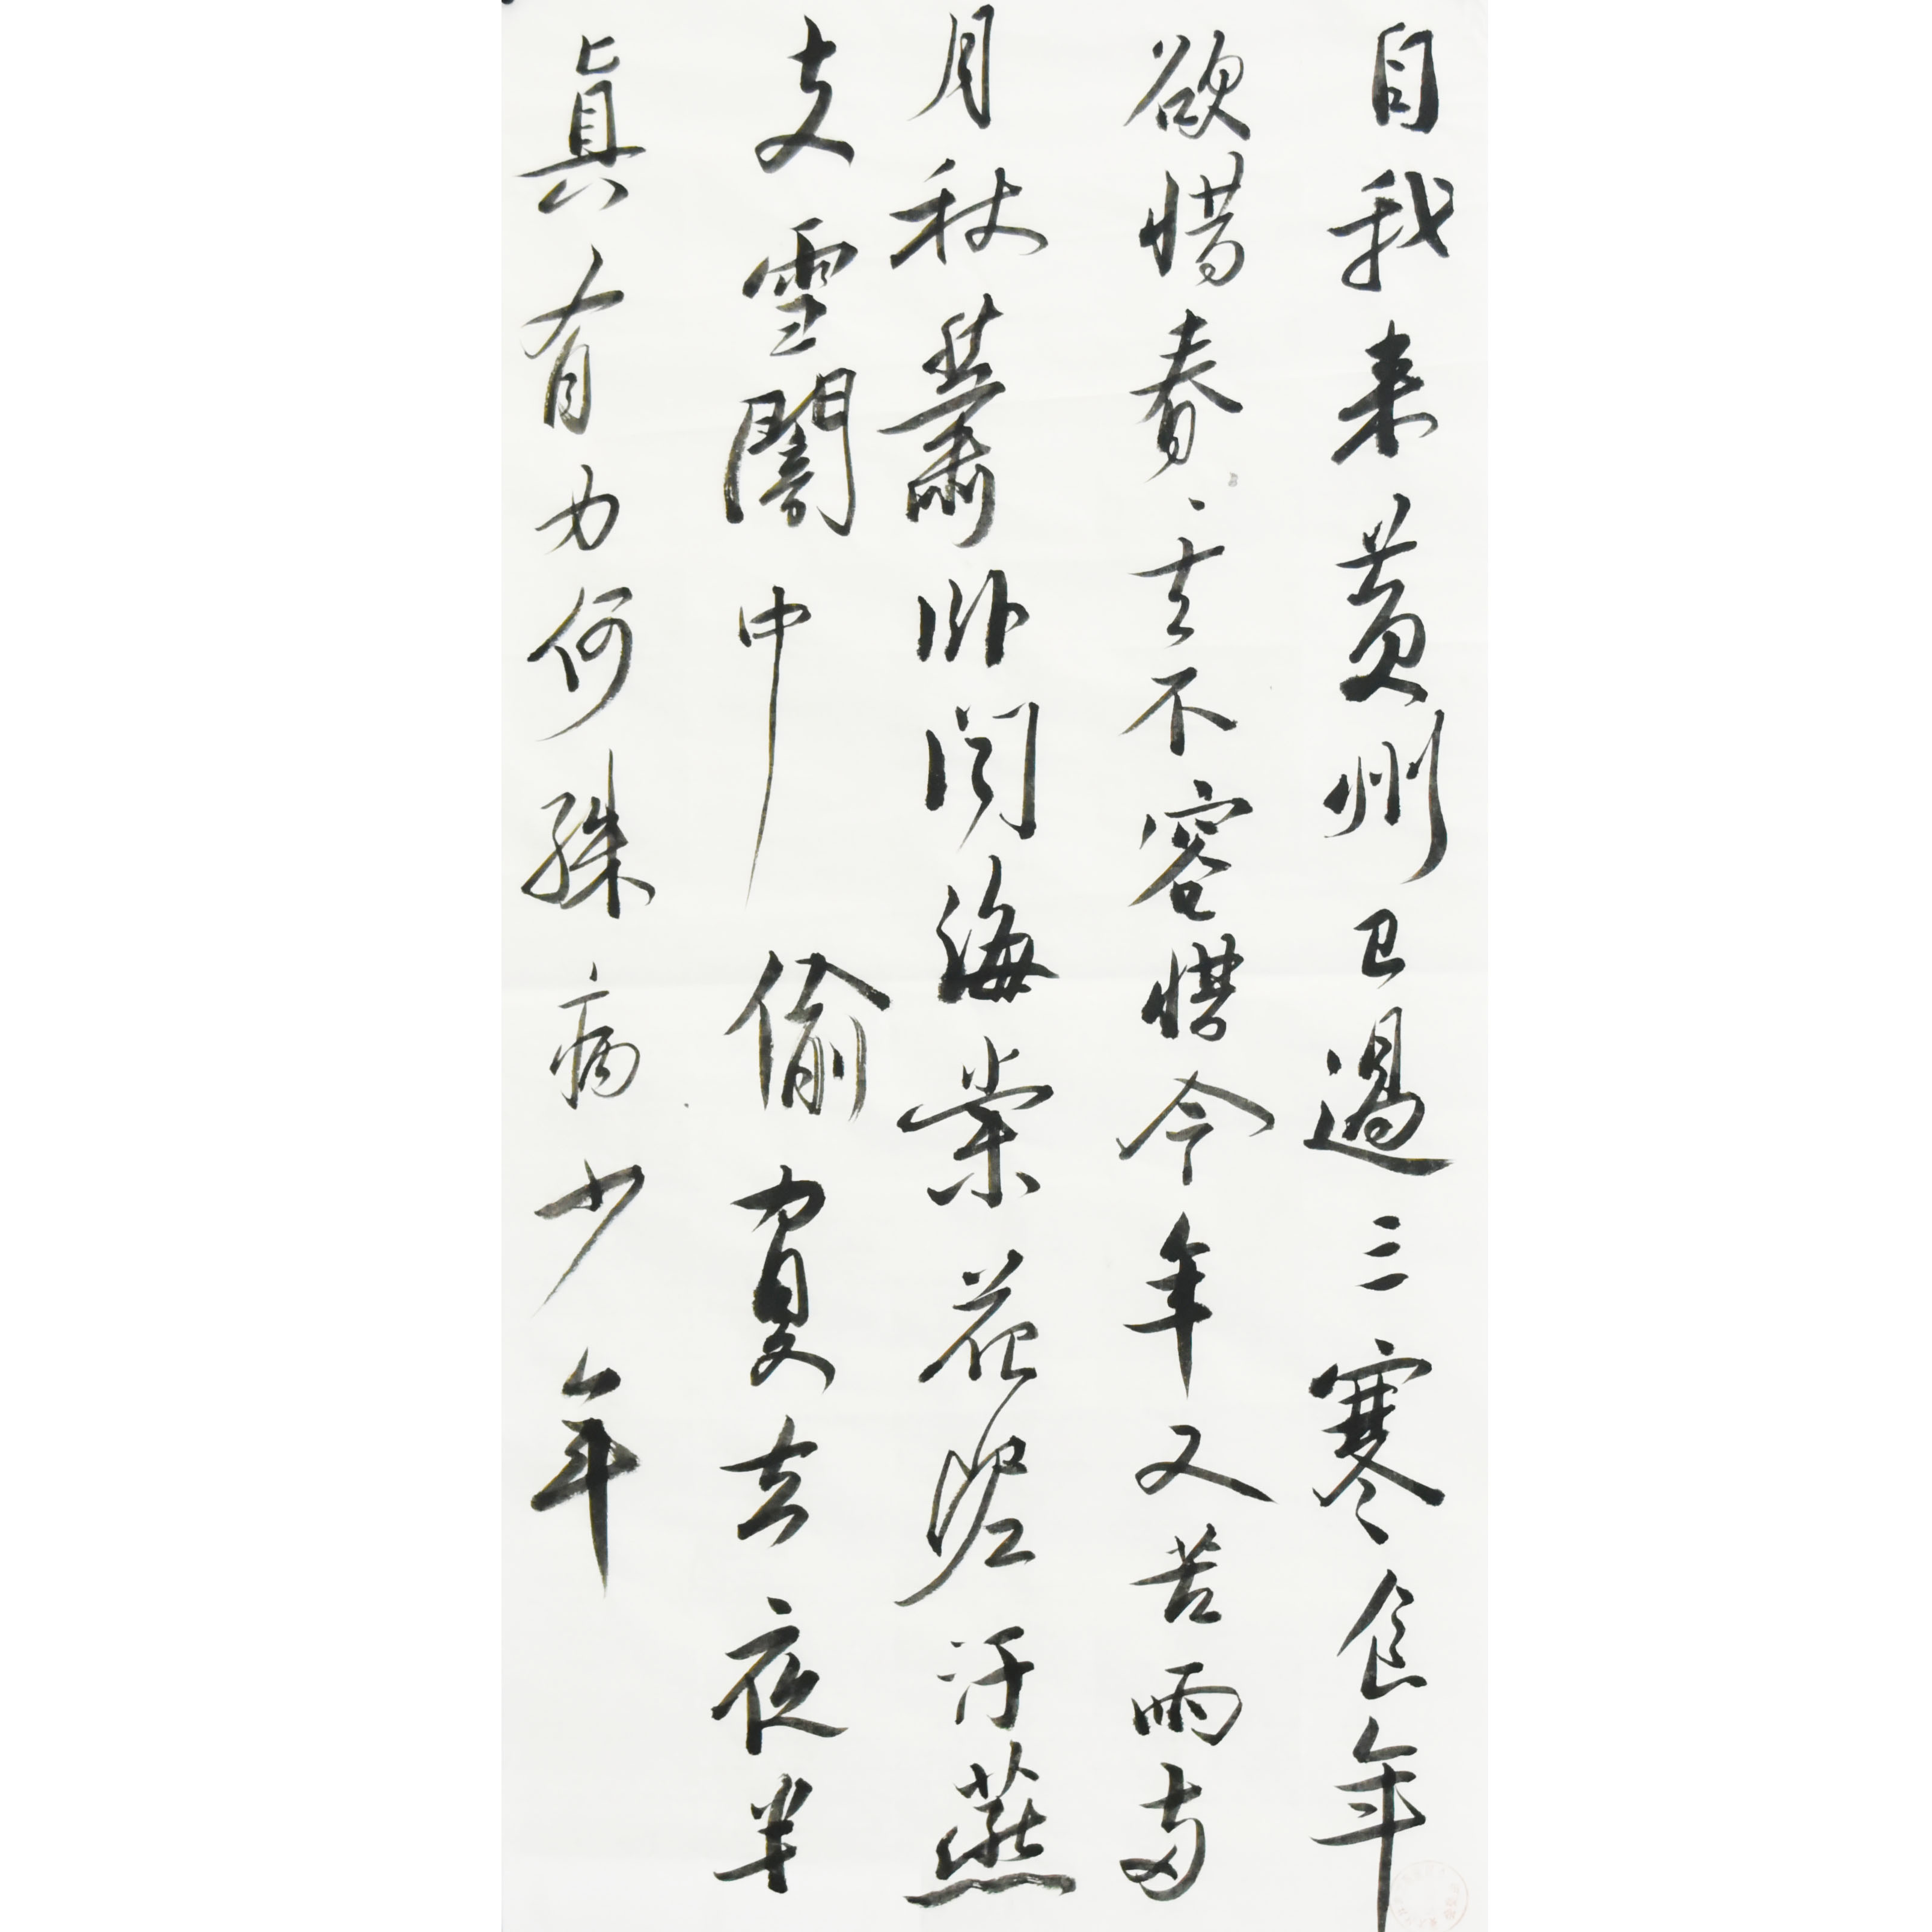 自我来黄州已過三寒食年
欲惜春、去不容惜今年又苦雨兩
月秋蕭卧聞海棠花泥汙燕
支雪闇中偷負去夜半
真有力何殊病少年